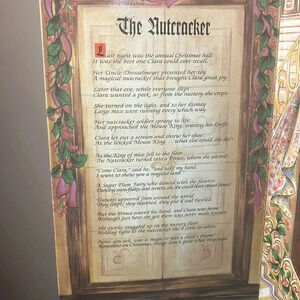 The Nutcracker
Last night was the annual Christmas ball
It was the best one Clara could ever recall.
Her Uncle Drosselmeyer presented her toy
A magical nutcracker that brought Clara great joy.
Later that eve, while everyone slept
Clara wanted a peek, so from the nursery she crept.
She turned on the light, and to her dismay
Large mice were running every which way.
Her nutcracker soldier sprang to life
And approached the Mouse King, waving his knife.
Clara let out a scream and threw her shoe
At the wicked Mouse King... what else could she do?
As the King of mice fell to the floor
The Nutcracker turned into a Prince, whom she adored.
"Come Clara," said he, "and take my hand
I want to show you a magical land."
A Sugar Plum Fairy who danced with the flowers
Dancing snowflakes and sweets
Dancers appeared from around the world
They leapt, they marched, they and twirled.
But the Prince waved his hand, and Clara was home
Although just how she got there was never made known.
She awoke snuggled up on the nursery floor
Holding tight to the nutcracker she'd come to adore.
Now, you ask, was it magic or just a child's dream?
Remember on Christmas, things aren't quite what they seem.